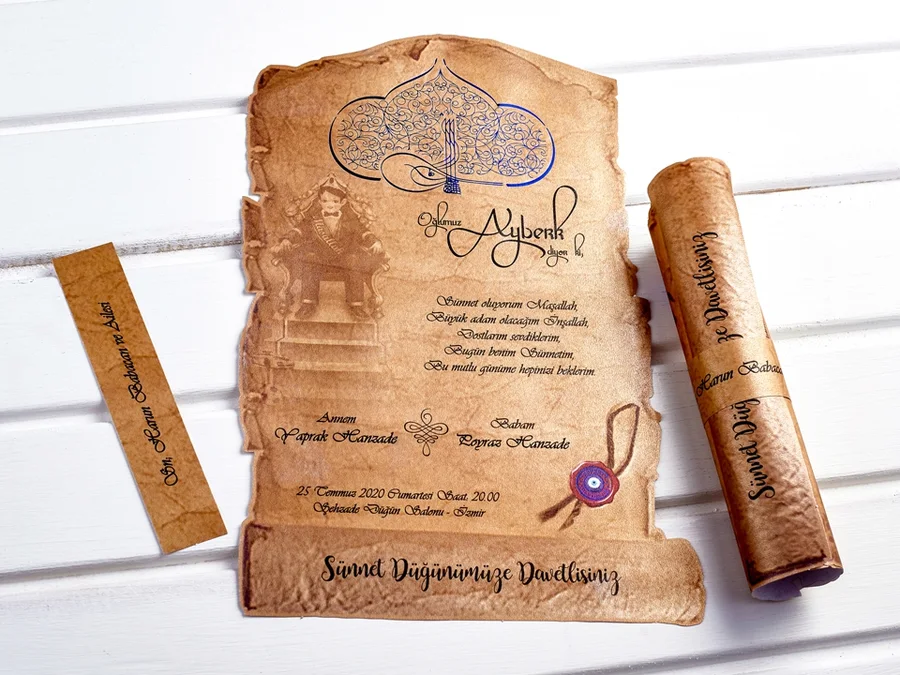 Oğlumuz
Ayberk
diyor ki;
Sünnet oluyorum Maşallah,
Büyük adam olacağım İnşallah,
Dostlarım sevdiklerim,
Bugün benim Sünnetim,
Bu mutlu günüme hepinizi beklerim.
Annem
Yaprak Hanzade
Babam
Poyraz Hanzade
25 Temmuz 2020 Cumartesi Saat: 20.00
Şehzade Düğün Salonu - İzmir
Sünnet Düğünümüze Davetlisiniz
Sn, Harun Babacan ve Ailesi
Sünnet Düğ
ze Davetlisiniz
Harun Babaca